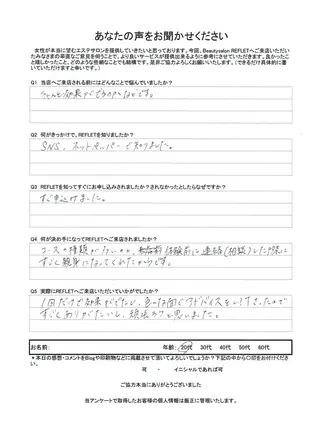 あなたの声をお聞かせください
女性が本当に望むエステサロンを提供していきたいと思っております。今回、Beautysalon REFLETへご来店いただい
たみなさまの率直なご意見を伺うことで、より良いサービスが提供出来るように参考にさせていただきます。良かったこ
と嬉しかったこと、どのような些細なことでも結構です。是非ご協力よろしくお願いいたします。(できるだけ具体的に書
いていただけますと幸いです。)
Q1 当店へご来店される前にはどんなことで悩んでいましたか?
効果がでるのか などです。
Q2 何がきっかけで、REFLETを知りましたか?
SNS、ホットペーパーで知りました。
Q3 REFLETを知ってすぐにお申し込みされましたか?されなかったとしたらなぜですか?
すぐ申込けました。
Q4 何が決め手になってREFLETへご来店されましたか?
コースの種類が 体験前に連絡(相談)した際に
すごく親身になってくれたからです。
Q5 実際にREFLETへご来店いただいていかがでしたか?
1回だけで効果がでたし、色々な面でアドバイスをして下さったので
すごくありがたいし、頑張ろうと思いました。
お名前: 年齢: 20代 30代 40代 50代 60代
*本日の感想・コメントをBlogや印刷物などに掲載させて頂いてよろしいでしょうか?下記の中から○印をお付けくださ
い。
可 ・ イニシャルであれば可
ご協力本当にありがとうございました
当アンケートで取得したお客様の個人情報は厳正に管理いたします。